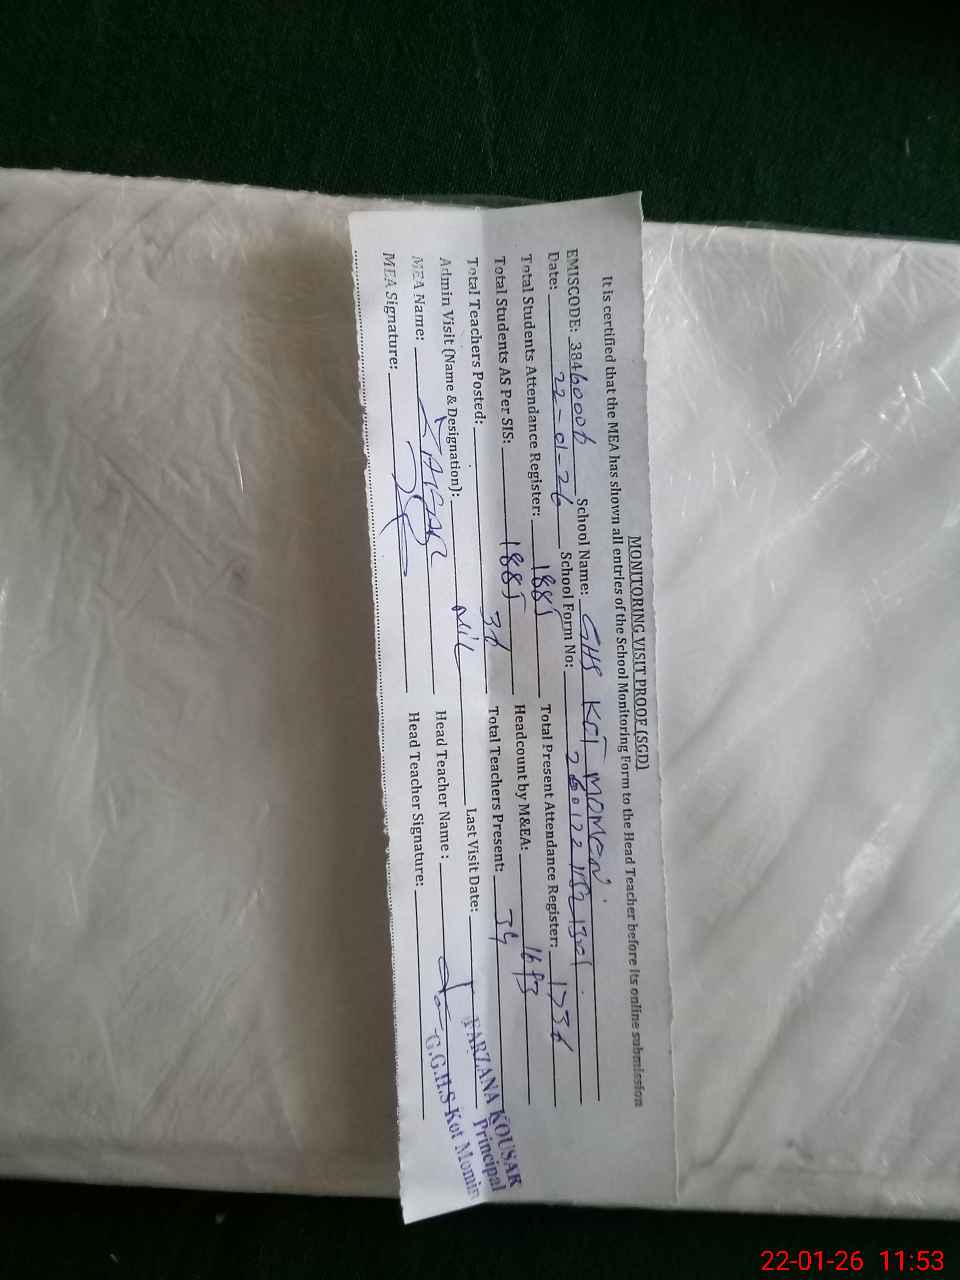 MONITORING VISIT PROOF (SGD)
It is certified that the MEA has shown all entries of the School Monitoring Form to the Head Teacher before its online submission
EMISCODE: 38460006 School Name: GHS KOT MOMEN
Date: 22-01-26 School Form No:
Total Students Attendance Register: 1885 Total Present Attendance Register: 1736
Total Students AS Per SIS: 1885 Headcount by M&EA: 1693
Total Teachers Posted: 36 Total Teachers Present: 34
Admin Visit (Name & Designation): Nil Last Visit Date:
MEA Name: Head Teacher Name :
MEA Signature: Head Teacher Signature:
FARZANA KOUSAR
Principal
G.G.H.S Kot Momin
22-01-26 11:53